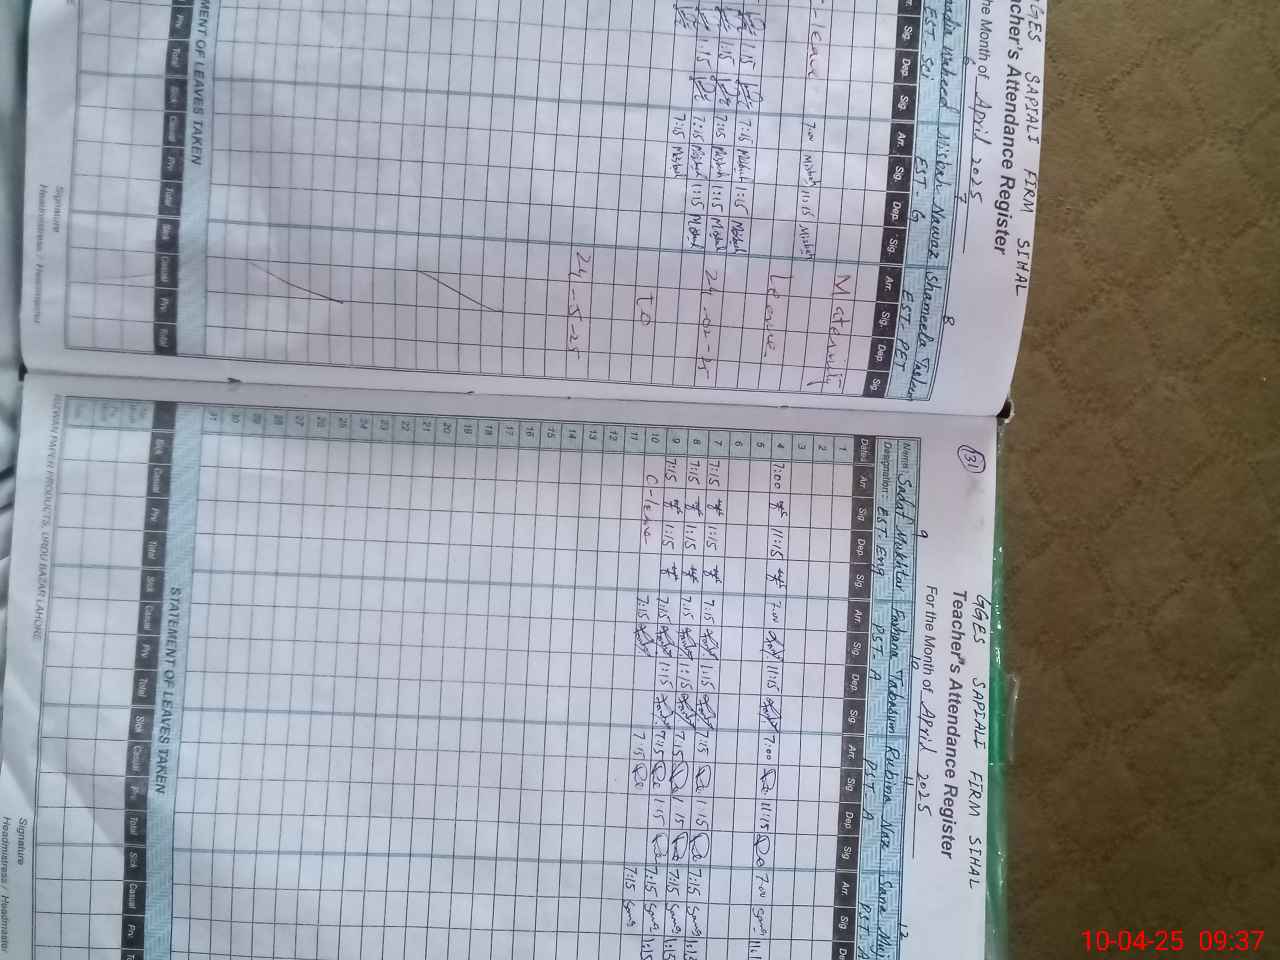 GGES SAPIALI FIRM SIHAL
Teacher's Attendance Register
the Month of April 2025
6 7 8
Waheed Misbah Nawaz Shameela
EST-Sci EST-G EST-PET
Sig. Dep. Sig. Arr. Sig. Dep. Sig. Arr. Sig. Dep. Sig.
Maternity
-leave 7:00 Misbah 11:15 Misbah
Leave
1:15 7:15 Misbah 1:15 Misbah
1:15 7:15 Misbah 1:15 Misbah 24-02-25
1:15 7:15 Misbah 1:15 Misbah
7:15 Misbah
to
24-5-25
MENT OF LEAVES TAKEN
Prv. Total Sick Casual Prv. Total Sick Casual Prv. Total
Signature
Headmistress /
131
GGES SAPIALI FIRM SIHAL
Teacher's Attendance Register
For the Month of April 2025
9 10 11 12
Name: Sadaf Mukhtar Farhana Tabasum Rubina Naz Sana
Designation: EST-Eng PST-A PST-A PST-A
Dates Arr. Sig. Dep. Sig. Arr. Sig. Dep. Sig. Arr. Sig. Dep. Sig. Arr. Sig.
1
2
3
4 7:00 11:15 7:00 11:15 7:00 11:15 7:00
5
6
7 7:15 1:15 7:15 1:15 7:15 1:15 7:15 1:15
8 7:15 1:15 7:15 1:15 7:15 1:15 7:15 1:15
9 7:15 1:15 7:15 1:15 7:15 1:15 7:15 1:15
10 C-leave 7:15 7:15 7:15
11
12
13
14
15
16
17
18
19
20
21
22
23
24
25
26
27
28
29
30
31
STATEMENT OF LEAVES TAKEN
Sick Casual Prv. Total Sick Casual Prv. Total Sick Casual Prv. Total Sick Casual Prv.
Signature
Headmistress / Headmaster
RIZWAN PAPER PRODUCTS, URDU BAZAR LAHORE
10-04-25 09:37